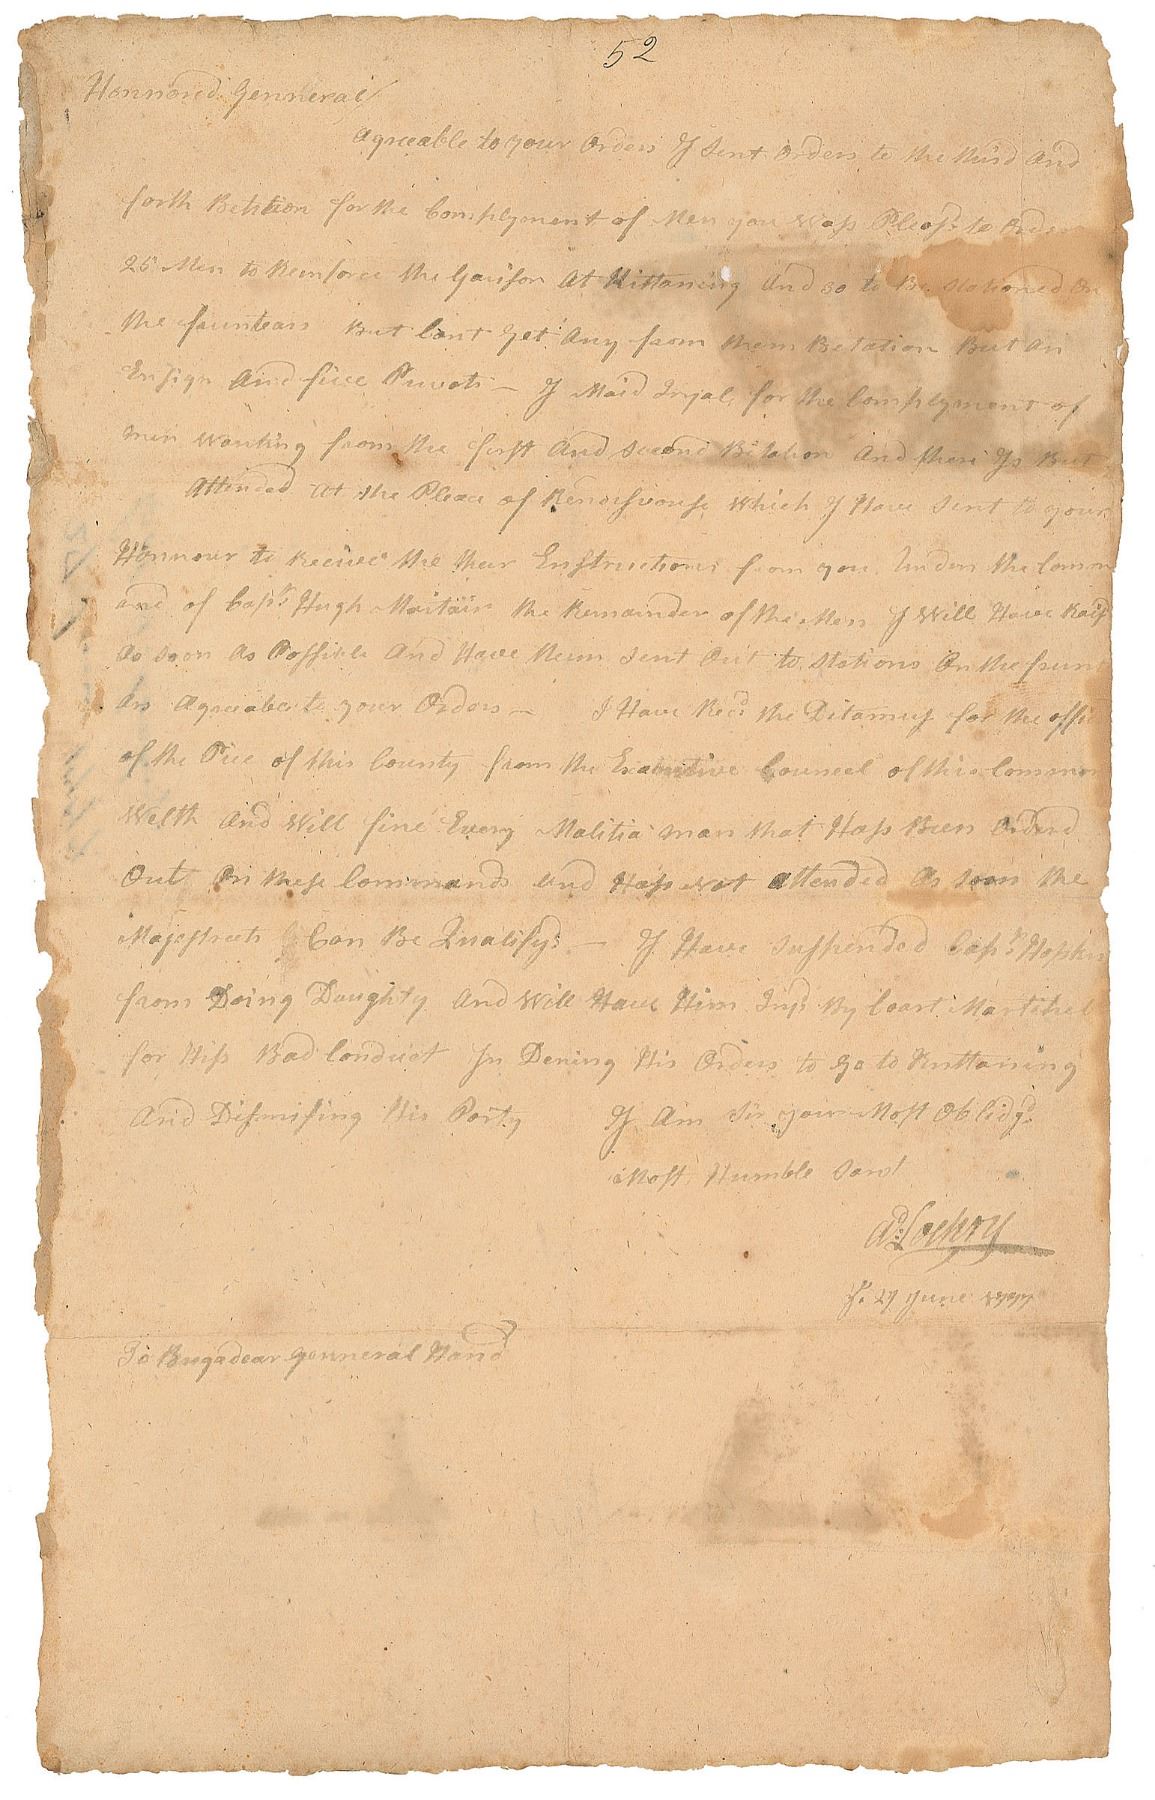 52
Honnored Genneral
Agreeable to your Orders I Sent Orders to the third And
forth Betition for the Complyment of Men you Wass Pleasd to
25 Men to Reinforce the Garison At Kittaning And 20 to Be Stationed On
the fruntears But Cant Get Any from them Betation But An
Ensign And five Privots — I Maid Tryal for the Complyment of
men Wanting from the first And Second Bitation And there Is But
Attended At the Place of Rendisvouse Which I Have Sent to your
Honnour to Receive the thear Enstructions from you Under the Comm
and of Capt Hugh Martain the Remainder of the Men I Will Have
As Soon As Possible And Have them Sent Out to Stations On the frunt
Ars Agreeable to your Orders — I Have Recd the for the
of the Pice of this County from the Executive Counsel of this Common
Welth And Will fine Every Malitia man that Hass Been Orderd
Out On these Commands and Hass Not attended As Soon the
Majestreets Can Be Qualifyd — I Have Suspended Capt
from Doing Doughty And Will Have Him Tryd By Coart
for Hiss Bad Conduct In Dening His Orders to Go to Kittaning
And Dismising His Party I Am Sir your Most Oblidgd
Most Humble Sarvt
Ad Lochry
27 June 1777
To Brigadear Genneral Hand